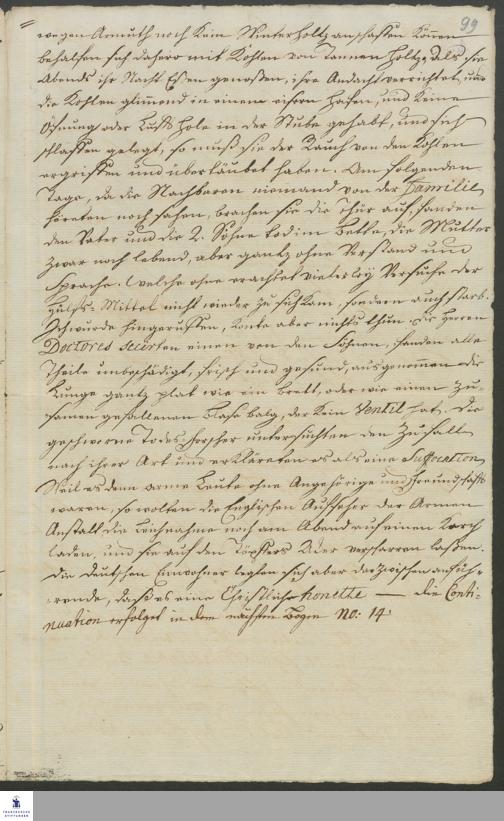 99
wegen Armuth noch kein Winterholtz anschaffen können
behalfen sich dahero mit Kohlen von Tannen Holtz, als sie
Abends ihr Nacht Eßen genoßen, ihre Andacht verrichtet, und
die Kohlen glimend in einem eisern Hafen, und keine
Öfnung oder Lufft hole in der Stube gehabt, und sich
schlaffen gelegt, so muß sie der Rauch von den Kohlen
ergriffen und übertäubet haben. Am folgenden
Tage, da die Nachbaren niemand von der Familie
höreten noch sahen, brachen sie die Thür auf, fanden
den Vater und die 2. Söhne tod im Bette, die Mutter
zwar noch lebend, aber gantz ohne Verstand und
Sprache. Welche ohne erachtet vielerley Versuche der
Hülfs-Mittel nicht wieder zu sich kam, sondern auch starb.
Ich wurde hingeruffen, konte aber nichts thun. Die Herren
Doctores secirten einen von den Söhnen, fanden alle
Theile unbeschädigt, frisch und gesund, ausgenommen die
Lunge gantz plat wie ein Brett, oder wie einen zu-
samen gefallenen Blase balg, der kein Ventil hat. Die
geschworne Todes forscher untersuchten den Zufall
nach ihrer Art und erkläreten es als eine Suffocation
Weil es denn arme Leute ohne Angehörige und Freundschafft
waren, so wolten die Englischen Aufseher der Armen
Anstalt die Leichname noch am Abend auf einen Karch
laden, und sie auf den Töpffers Aker verscharren laßen.
Die deutschen Einwohner legten sich aber dazwischen
daß es eine Christliche honette — die Conti-
nuation erfolget in dem nächsten Bogen No: 14
FRANCKESCHE
STIFTUNGEN